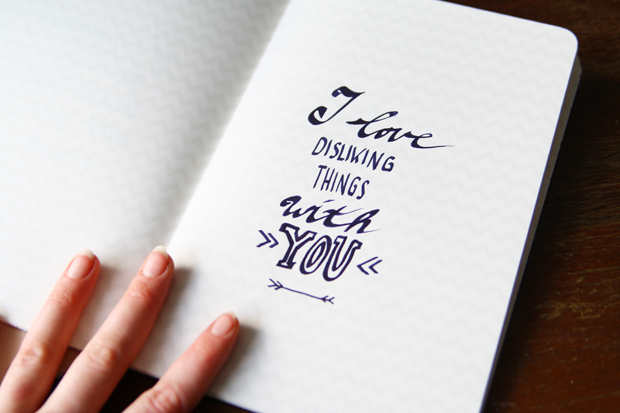 I love
DISLIKING
THINGS
with
» YOU «